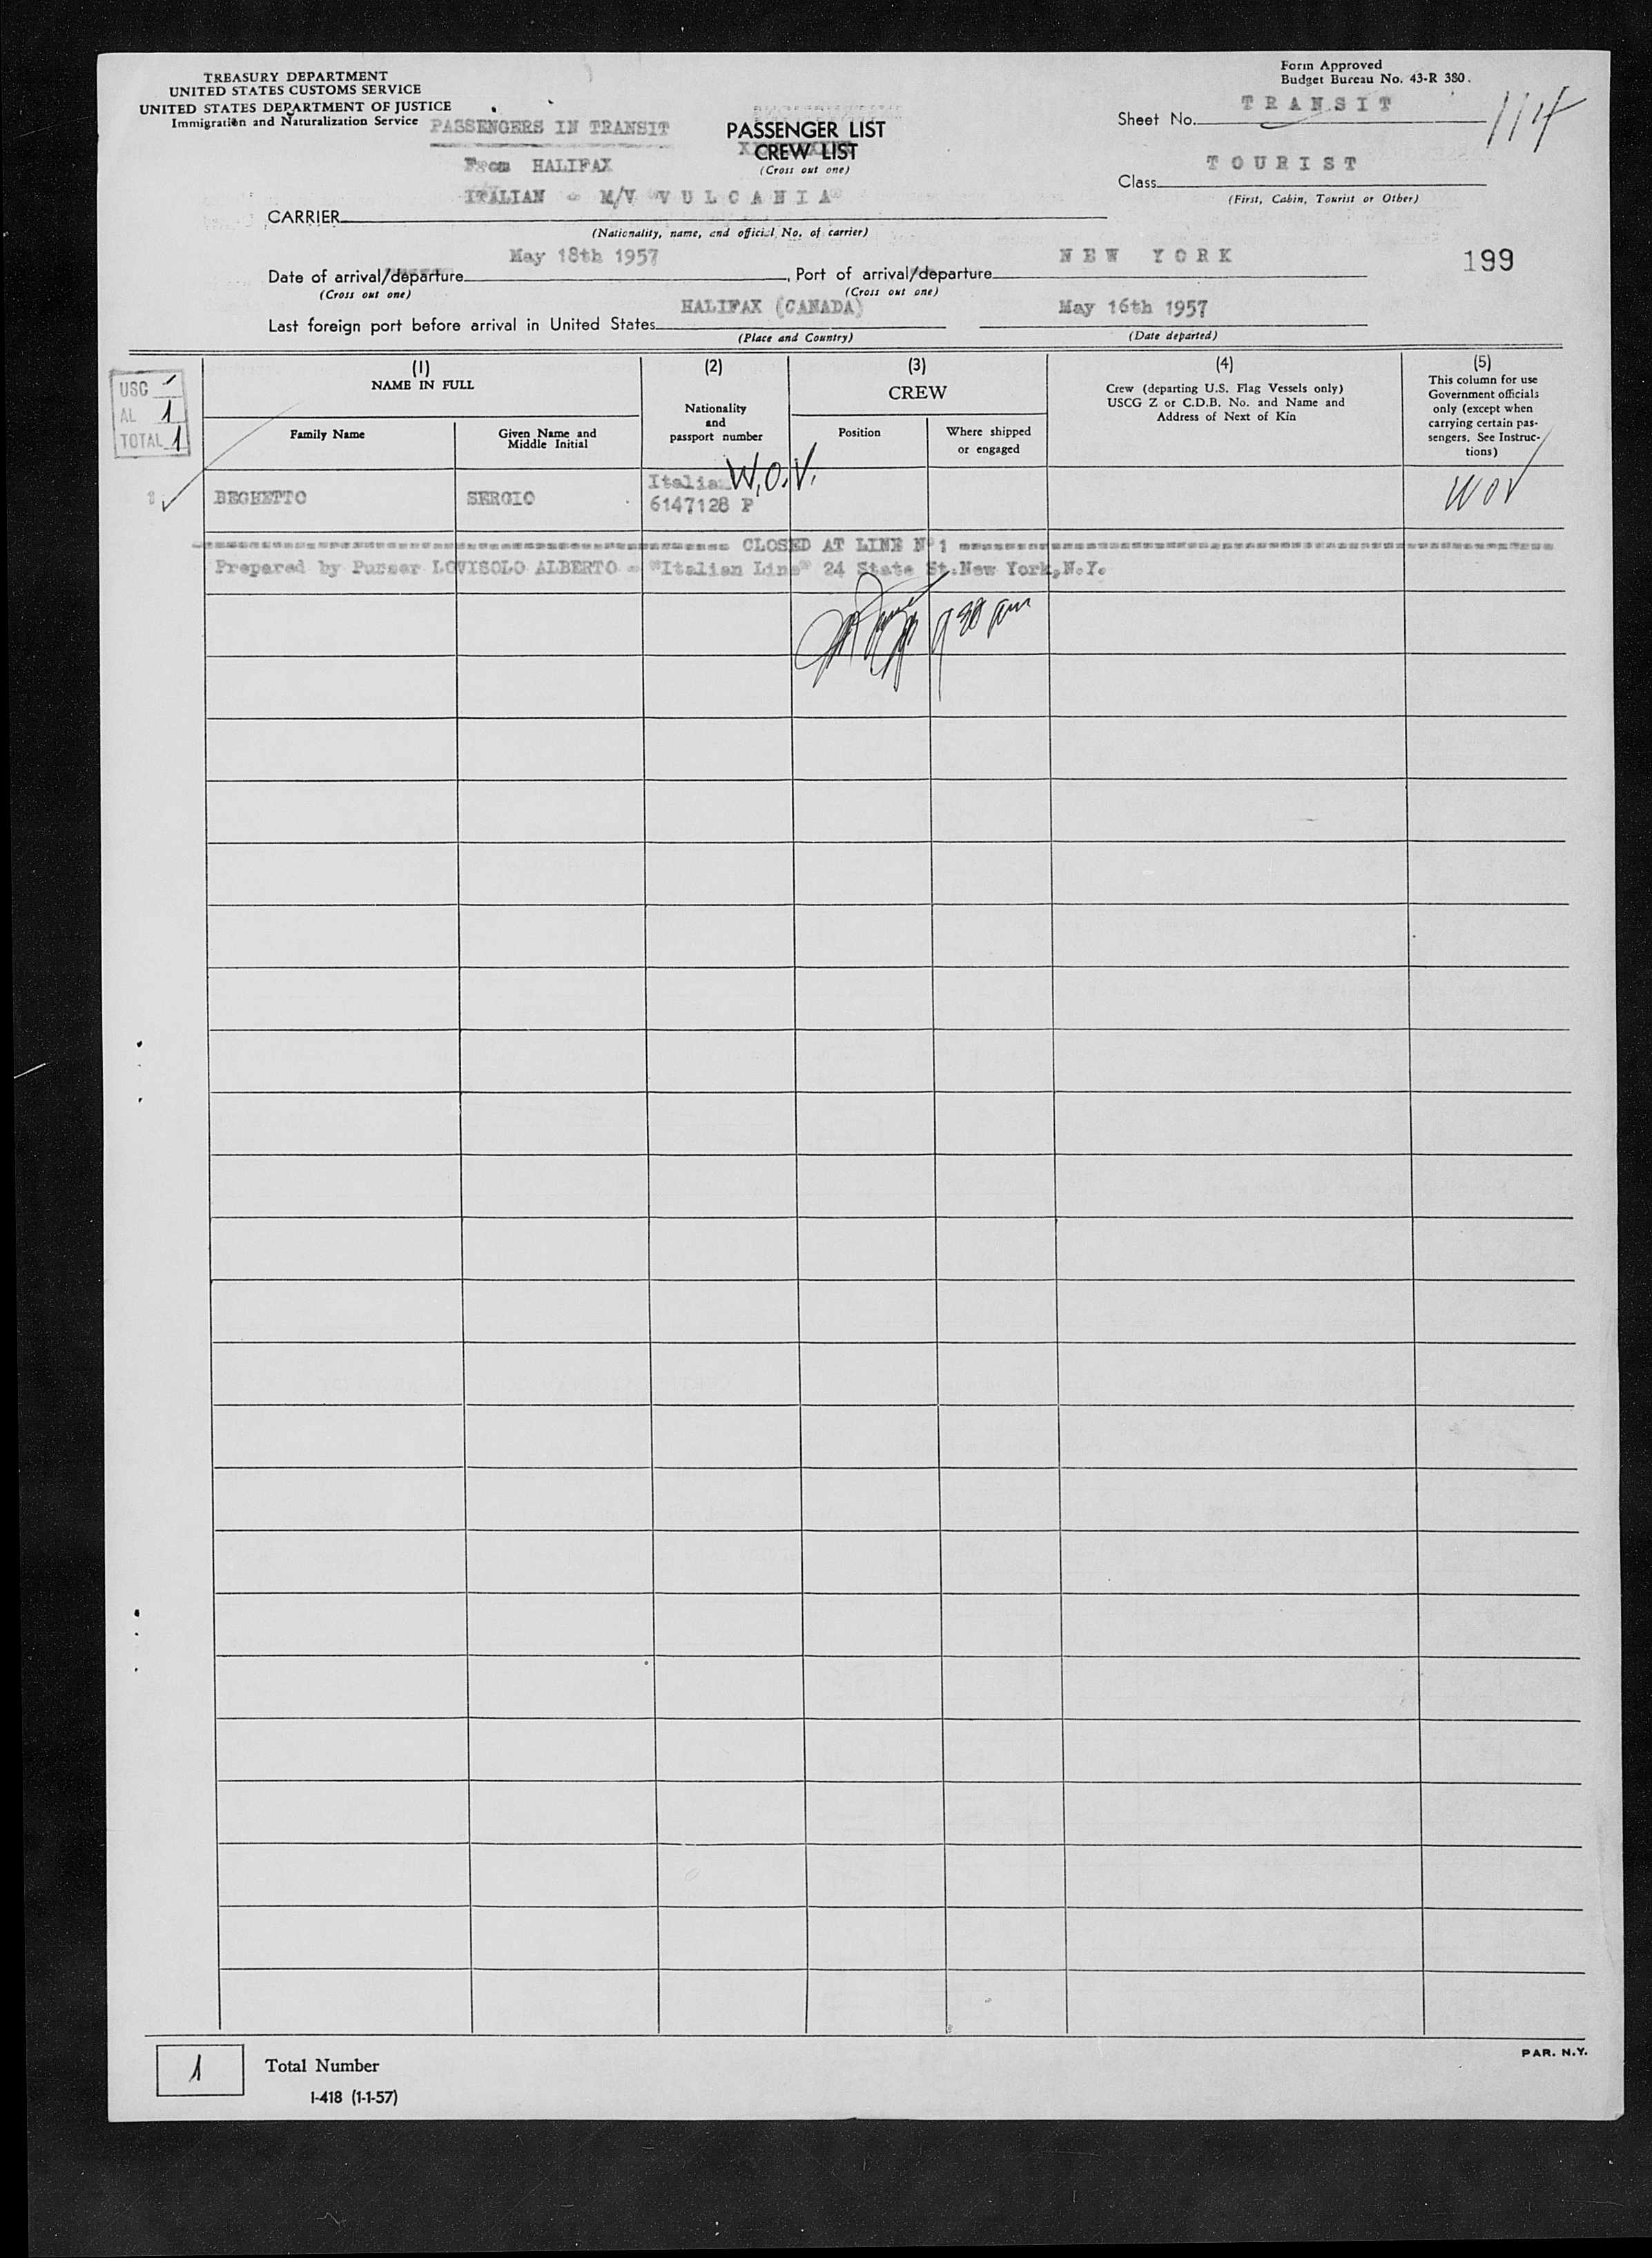 TREASURY DEPARTMENT
UNITED STATES CUSTOMS SERVICE
UNITED STATES DEPARTMENT OF JUSTICE
Immigration and Naturalization Service
PASSENGERS IN TRANSIT
From HALIFAX
PASSENGER LIST
CREW LIST
(Cross out one)
Form Approved
Budget Bureau No. 43-R 380.
Sheet No. TRANSIT
114
Class TOURIST
(First, Cabin, Tourist or Other)
CARRIER ITALIAN - M/V "VULCANIA"
(Nationality, name, and official No. of carrier)
Date of arrival/departure May 18th 1957, Port of arrival/departure NEW YORK
199
(Cross out one) (Cross out one)
Last foreign port before arrival in United States HALIFAX (CANADA) May 16th 1957
(Place and Country) (Date departed)
USC
AL 1
TOTAL 1
(1)
NAME IN FULL
Family Name
Given Name and
Middle Initial
(2)
Nationality
and
passport number
(3)
CREW
Position
Where shipped
or engaged
(4)
Crew (departing U.S. Flag Vessels only)
USCG Z or C.D.B. No. and Name and
Address of Next of Kin
(5)
This column for use
Government officials
only (except when
carrying certain pas-
sengers. See Instruc-
tions)
1 BEGHETTO SERGIO Italian W.O.V. WOV
6147128 P
CLOSED AT LINE N° 1
Prepared by Purser LOVISOLO ALBERTO - "Italian Line" 24 State St. New York, N.Y.
1 Total Number
I-418 (1-1-57)
PAR. N.Y.